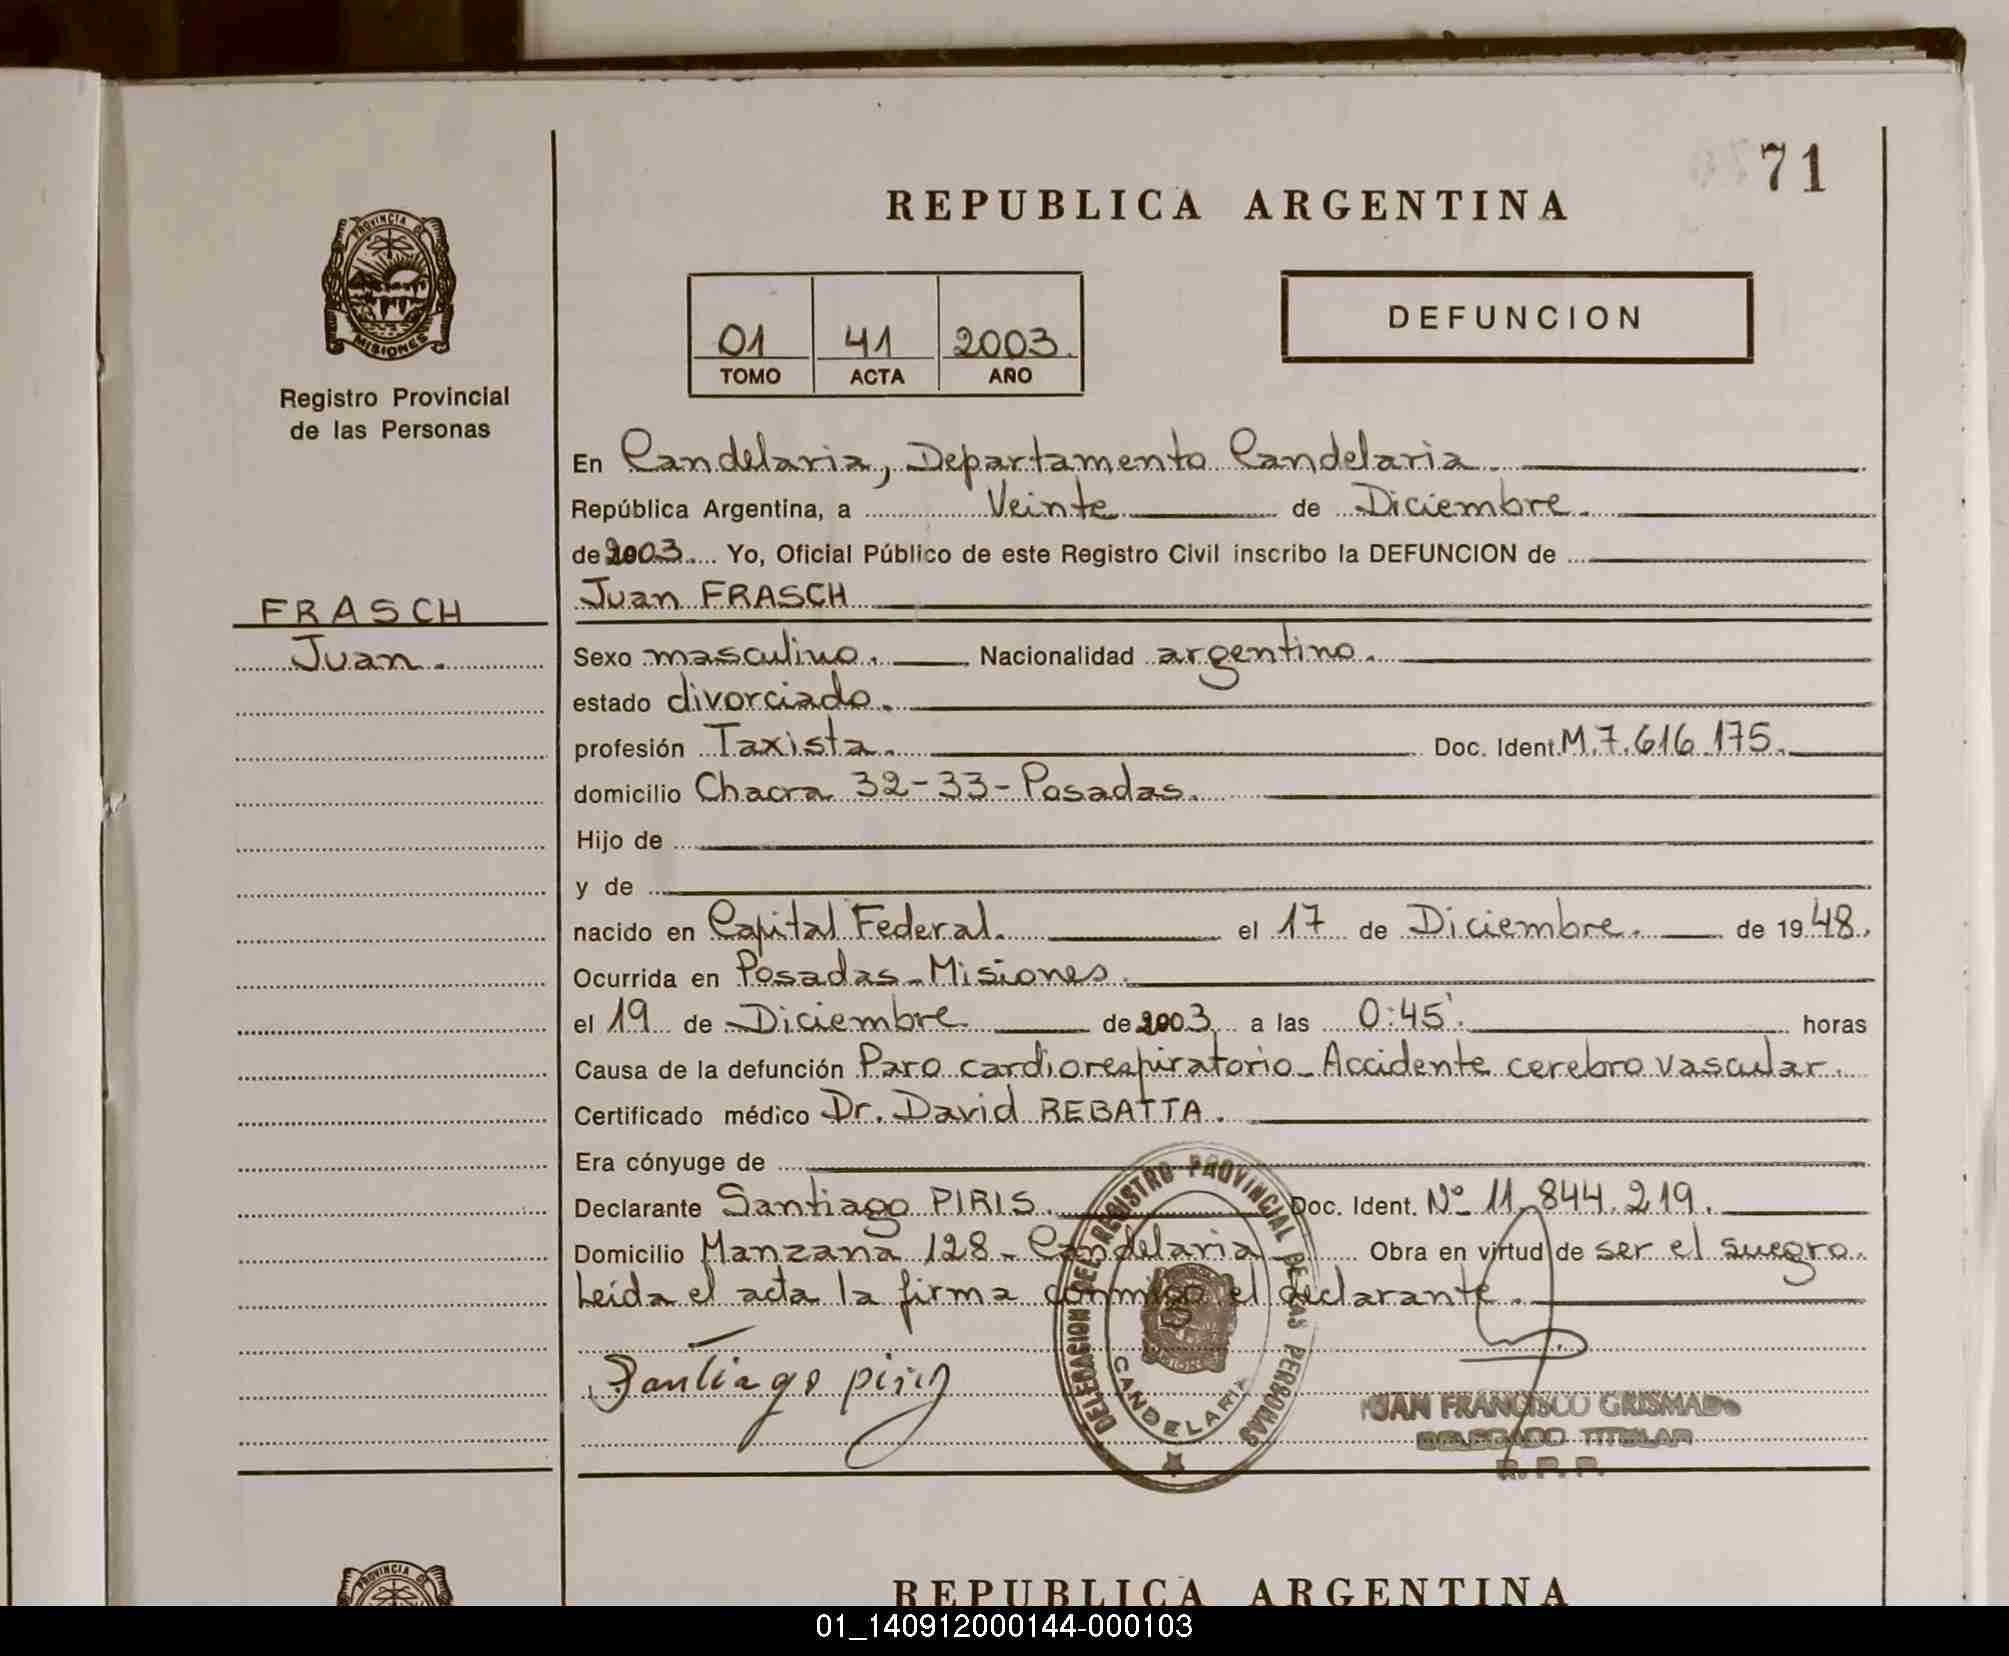 71
REPUBLICA ARGENTINA
PROVINCIA DE
MISIONES
Registro Provincial
de las Personas
01 41 2003.
TOMO ACTA AÑO
DEFUNCION
En Candelaria, Departamento Candelaria.
República Argentina, a Veinte de Diciembre.
de 2003. Yo, Oficial Público de este Registro Civil inscribo la DEFUNCION de
FRASCH
Juan.
Juan FRASCH
Sexo masculino. Nacionalidad argentino.
estado divorciado.
profesión Taxista. Doc. Ident. M.7.616.175.
domicilio Chacra 32-33-Posadas.
Hijo de
y de
nacido en Capital Federal. el 17 de Diciembre. de 1948.
Ocurrida en Posadas-Misiones.
el 19 de Diciembre de 2003 a las 0:45'. horas
Causa de la defunción Paro cardiorespiratorio-Accidente cerebro vascular.
Certificado médico Dr. David REBATTA.
Era cónyuge de
Declarante Santiago PIRIS. Doc. Ident. Nº 11.844.219.
Domicilio Manzana 128-Candelaria Obra en virtud de ser el suegro.
Leída el acta la firma conmigo el declarante.
Santiago piris
DELEGACION DEL REGISTRO PROVINCIAL DE LAS PERSONAS
CANDELARIA
JUAN FRANCISCO GRISMADO
DELEGADO TITULAR
R. P. P.
PROVINCIA DE
REPUBLICA ARGENTINA
01_140912000144-000103